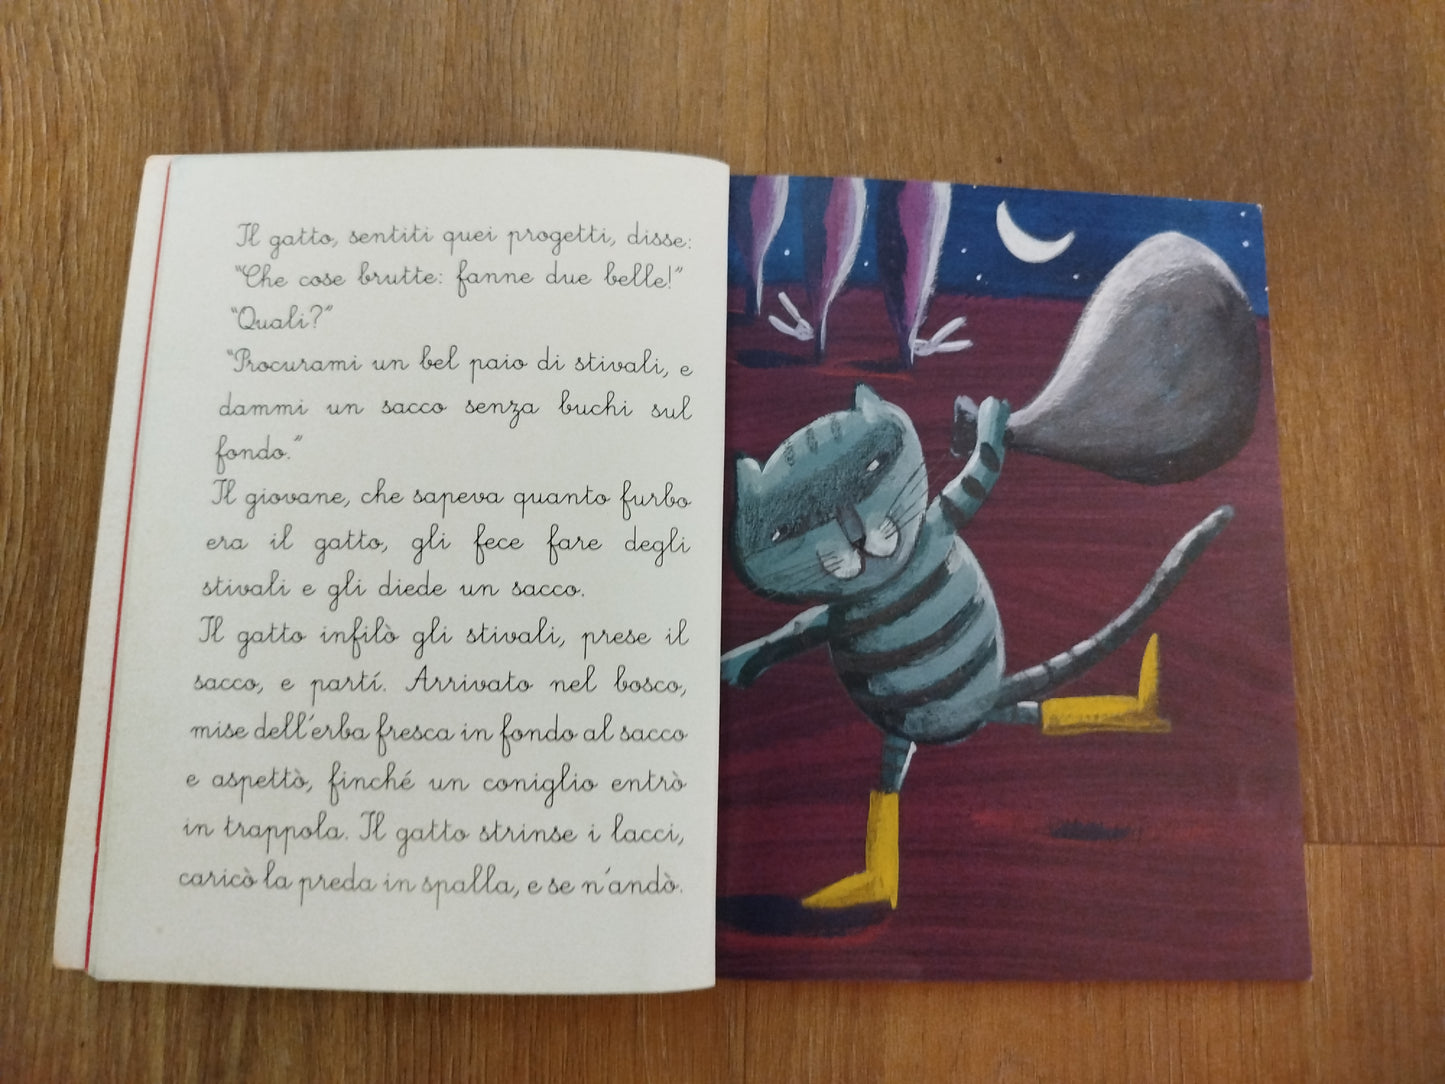 Il gatto, sentiti quei progetti, disse:
"Che cose brutte: fanne due belle!"
"Quali?"
"Procurami un bel paio di stivali, e
dammi un sacco senza buchi sul
fondo."
Il giovane, che sapeva quanto furbo
era il gatto, gli fece fare degli
stivali e gli diede un sacco.
Il gatto infilò gli stivali, prese il
sacco, e partí. Arrivato nel bosco,
mise dell'erba fresca in fondo al sacco
e aspettò, finché un coniglio entrò
in trappola. Il gatto strinse i lacci,
caricò la preda in spalla, e se n'andò.